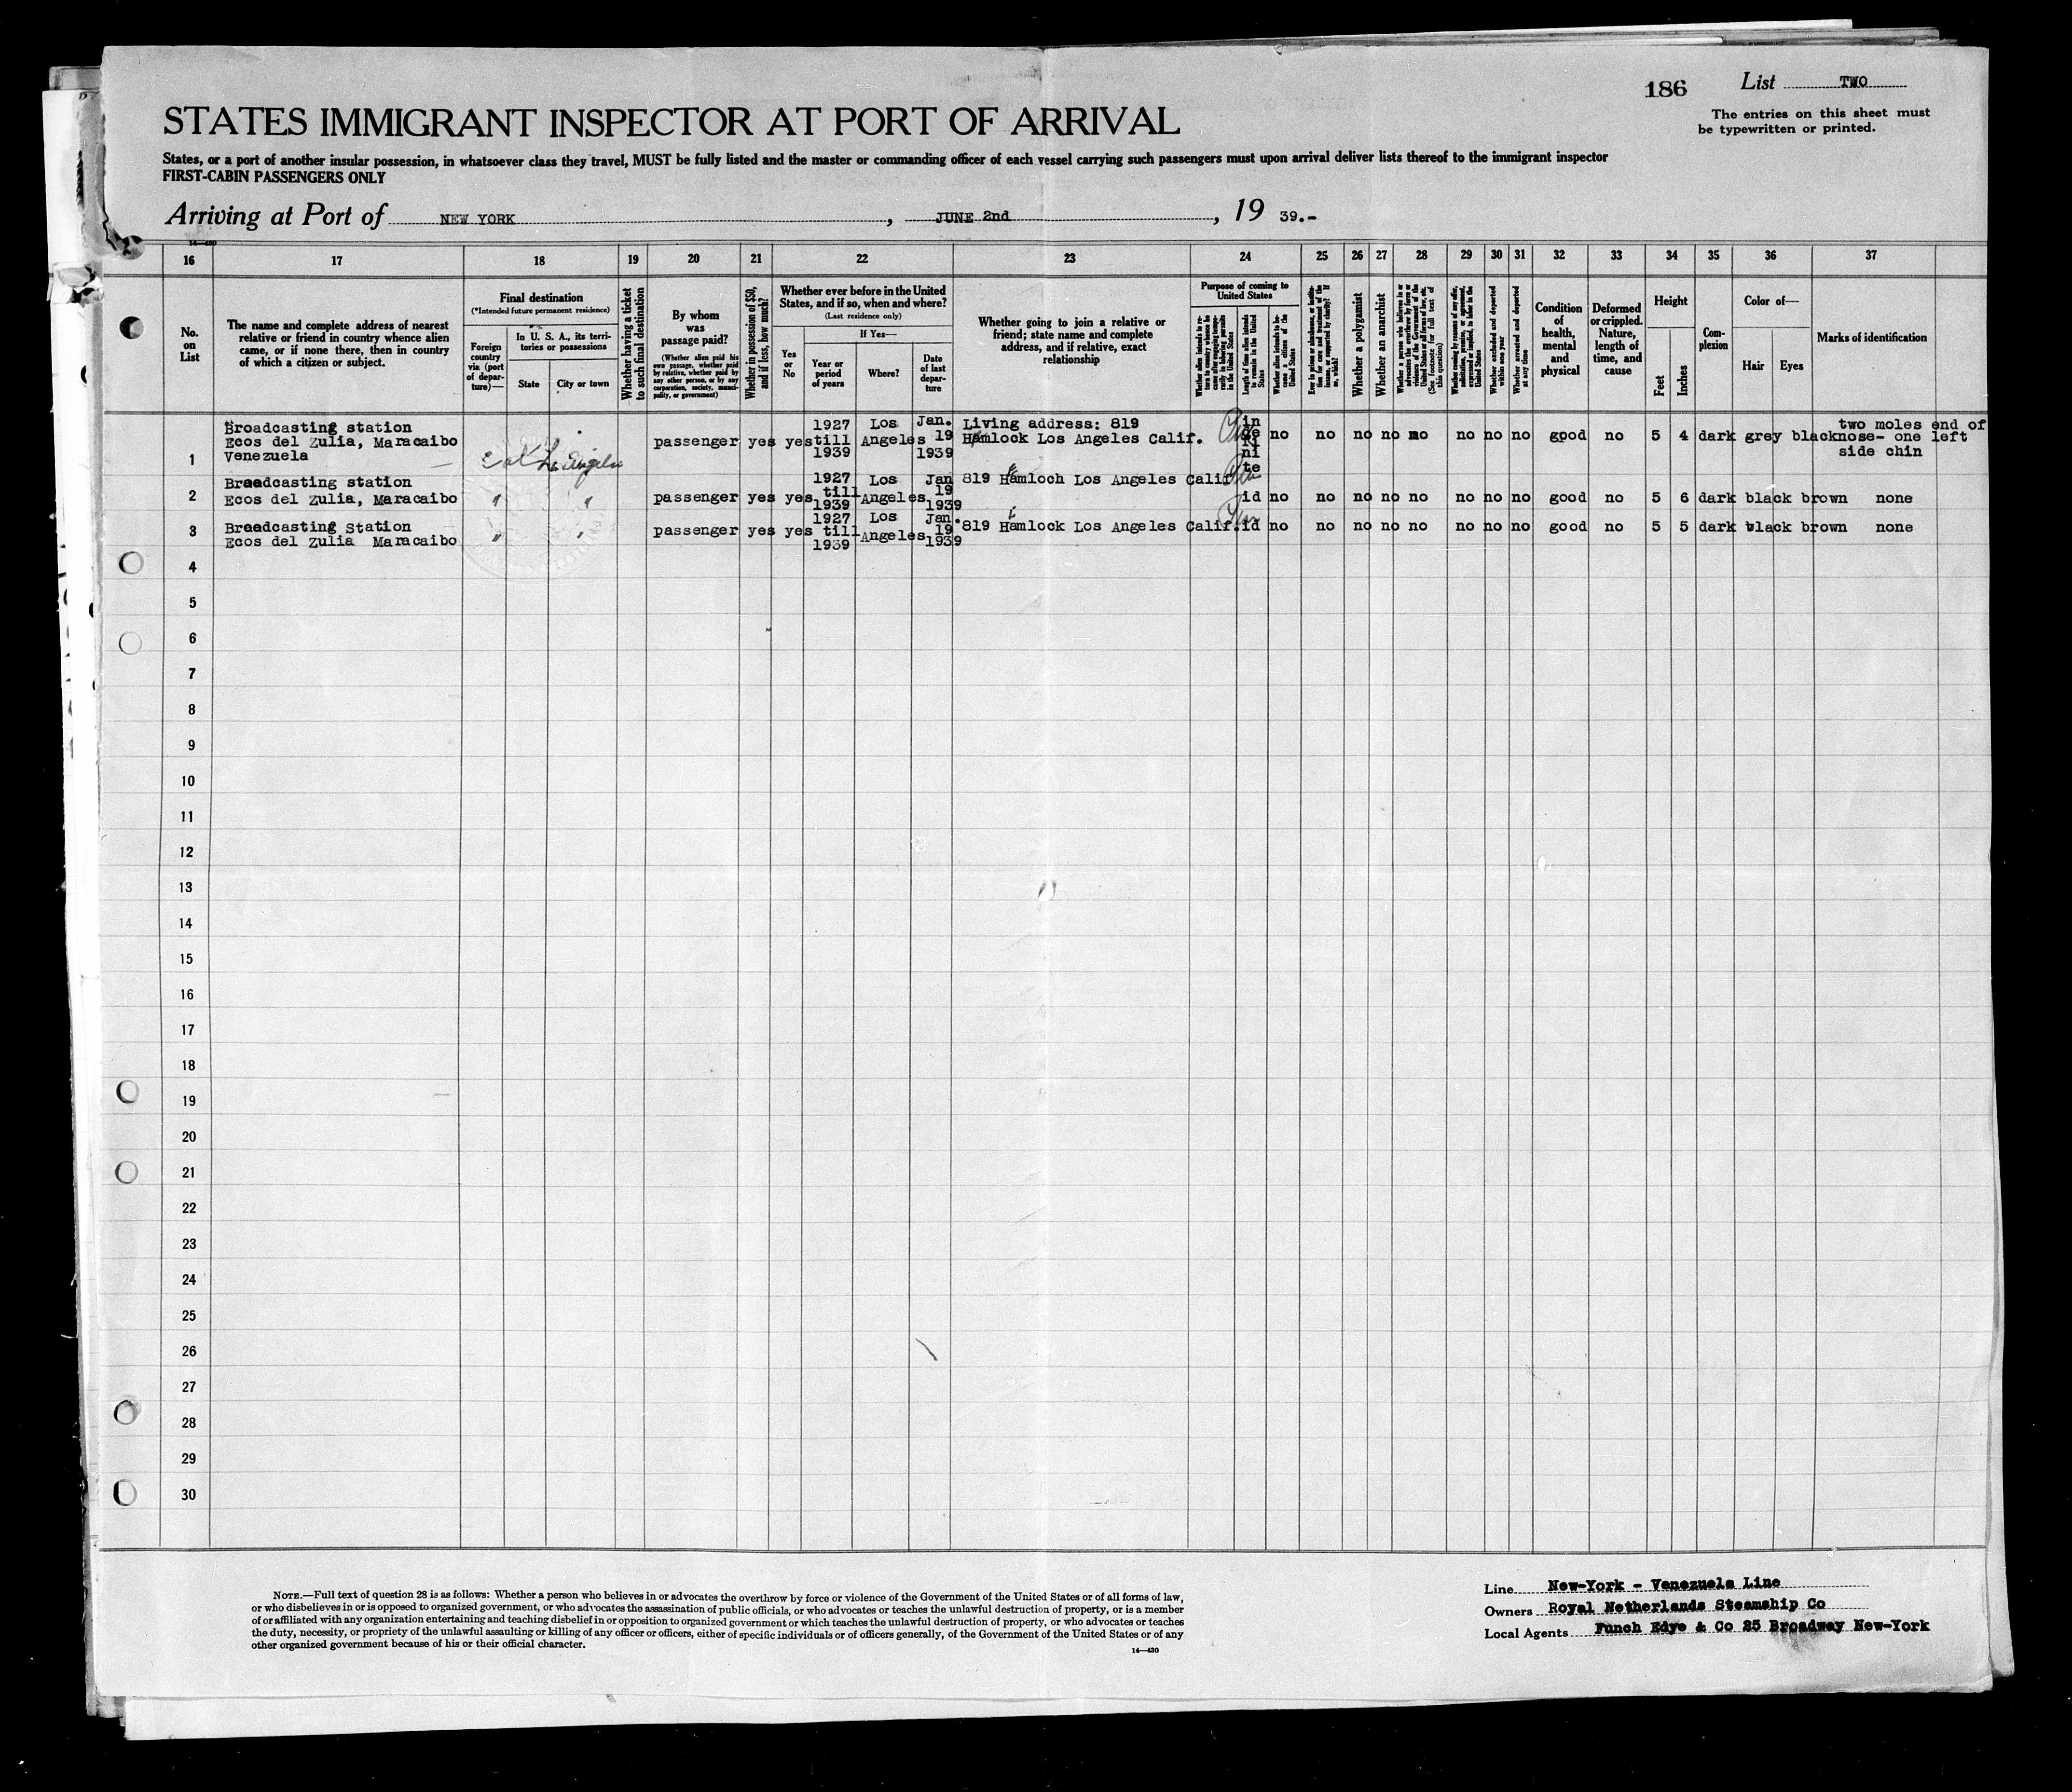 186
List TWO
The entries on this sheet must
be typewritten or printed.
STATES IMMIGRANT INSPECTOR AT PORT OF ARRIVAL
States, or a port of another insular possession, in whatsoever class they travel, MUST be fully listed and the master or commanding officer of each vessel carrying such passengers must upon arrival deliver lists thereof to the immigrant inspector
FIRST-CABIN PASSENGERS ONLY
Arriving at Port of NEW YORK, JUNE 2nd, 19 39.-
14—430
16 17 18 19 20 21 22 23 24 25 26 27 28 29 30 31 32 33 34 35 36 37
No.
on
List
The name and complete address of nearest
relative or friend in country whence alien
came, or if none there, then in country
of which a citizen or subject.
Final destination
(*Intended future permanent residence)
Foreign
country
via (port
of depar-
ture)—
In U. S. A., its terri-
tories or possessions
State
City or town
Whether having a ticket
to such final destination
By whom
was
passage paid?
(Whether alien paid his
own passage, whether paid
by relative, whether paid by
any other person, or by any
corporation, society, munici-
pality, or government)
Whether in possession of $50,
and if less, how much?
Whether ever before in the United
States, and if so, when and where?
(Last residence only)
Yes
or
No
If Yes—
Year or
period
of years
Where?
Date
of last
depar-
ture
Whether going to join a relative or
friend; state name and complete
address, and if relative, exact
relationship
Purpose of coming to
United States
Whether alien intends to re-
turn to country whence he
came after engaging tempo-
rarily in laboring pursuits
in the United States
Length of time alien intends
to remain in the United
States
Whether alien intends to be-
come a citizen of the
United States
Ever in prison or almshouse, or institu-
tion for care and treatment of the
insane, or supported by charity? If
so, which?
Whether a polygamist
Whether an anarchist
Whether a person who believes in or
advocates the overthrow by force or
violence of the Government of the
United States or all forms of law, etc.
(See footnote for full text of
this question)
Whether coming by reason of any offer,
solicitation, promise, or agreement,
expressed or implied, to labor in the
United States
Whether excluded and deported
within one year
Whether arrested and deported
at any time
Condition
of
health,
mental
and
physical
Deformed
or crippled.
Nature,
length of
time, and
cause
Height
Feet
Inches
Com-
plexion
Color of—
Hair Eyes
Marks of identification
1
Broadcasting station
Ecos del Zulia, Maracaibo
Venezuela
Cal Los Angeles
passenger yes yes
1927
till
1939
Los
Angeles
Jan.
19
1939
Living address: 819
Hamlock Los Angeles Calif.
in
de
fi
ni
te
no no no no no no no no good no 5 4 dark grey black
two moles end of
nose- one left
side chin
2
Broadcasting station
Ecos del Zulia, Maracaibo
" "
passenger yes yes
1927
till
1939
Los
Angeles
Jan
19
1939
819 Hamloch Los Angeles Calif
id no no no no no no no no good no 5 6 dark black brown none
3
Broadcasting Station
Ecos del Zulia Maracaibo
" "
passenger yes yes
1927
till
1939
Los
Angeles
Jan.
19
1939
819 Hamlock Los Angeles Calif.
id no no no no no no no no good no 5 5 dark black brown none
4
5
6
7
8
9
10
11
12
13
14
15
16
17
18
19
20
21
22
23
24
25
26
27
28
29
30
NOTE.—Full text of question 28 is as follows: Whether a person who believes in or advocates the overthrow by force or violence of the Government of the United States or of all forms of law,
or who disbelieves in or is opposed to organized government, or who advocates the assassination of public officials, or who advocates or teaches the unlawful destruction of property, or is a member
of or affiliated with any organization entertaining and teaching disbelief in or opposition to organized government or which teaches the unlawful destruction of property, or who advocates or teaches
the duty, necessity, or propriety of the unlawful assaulting or killing of any officer or officers, either of specific individuals or of officers generally, of the Government of the United States or of any
other organized government because of his or their official character.
14—430
Line New-York - Venezuela Line
Owners Royal Netherlands Steamship Co
Local Agents Funch Edye & Co 25 Broadway New-York